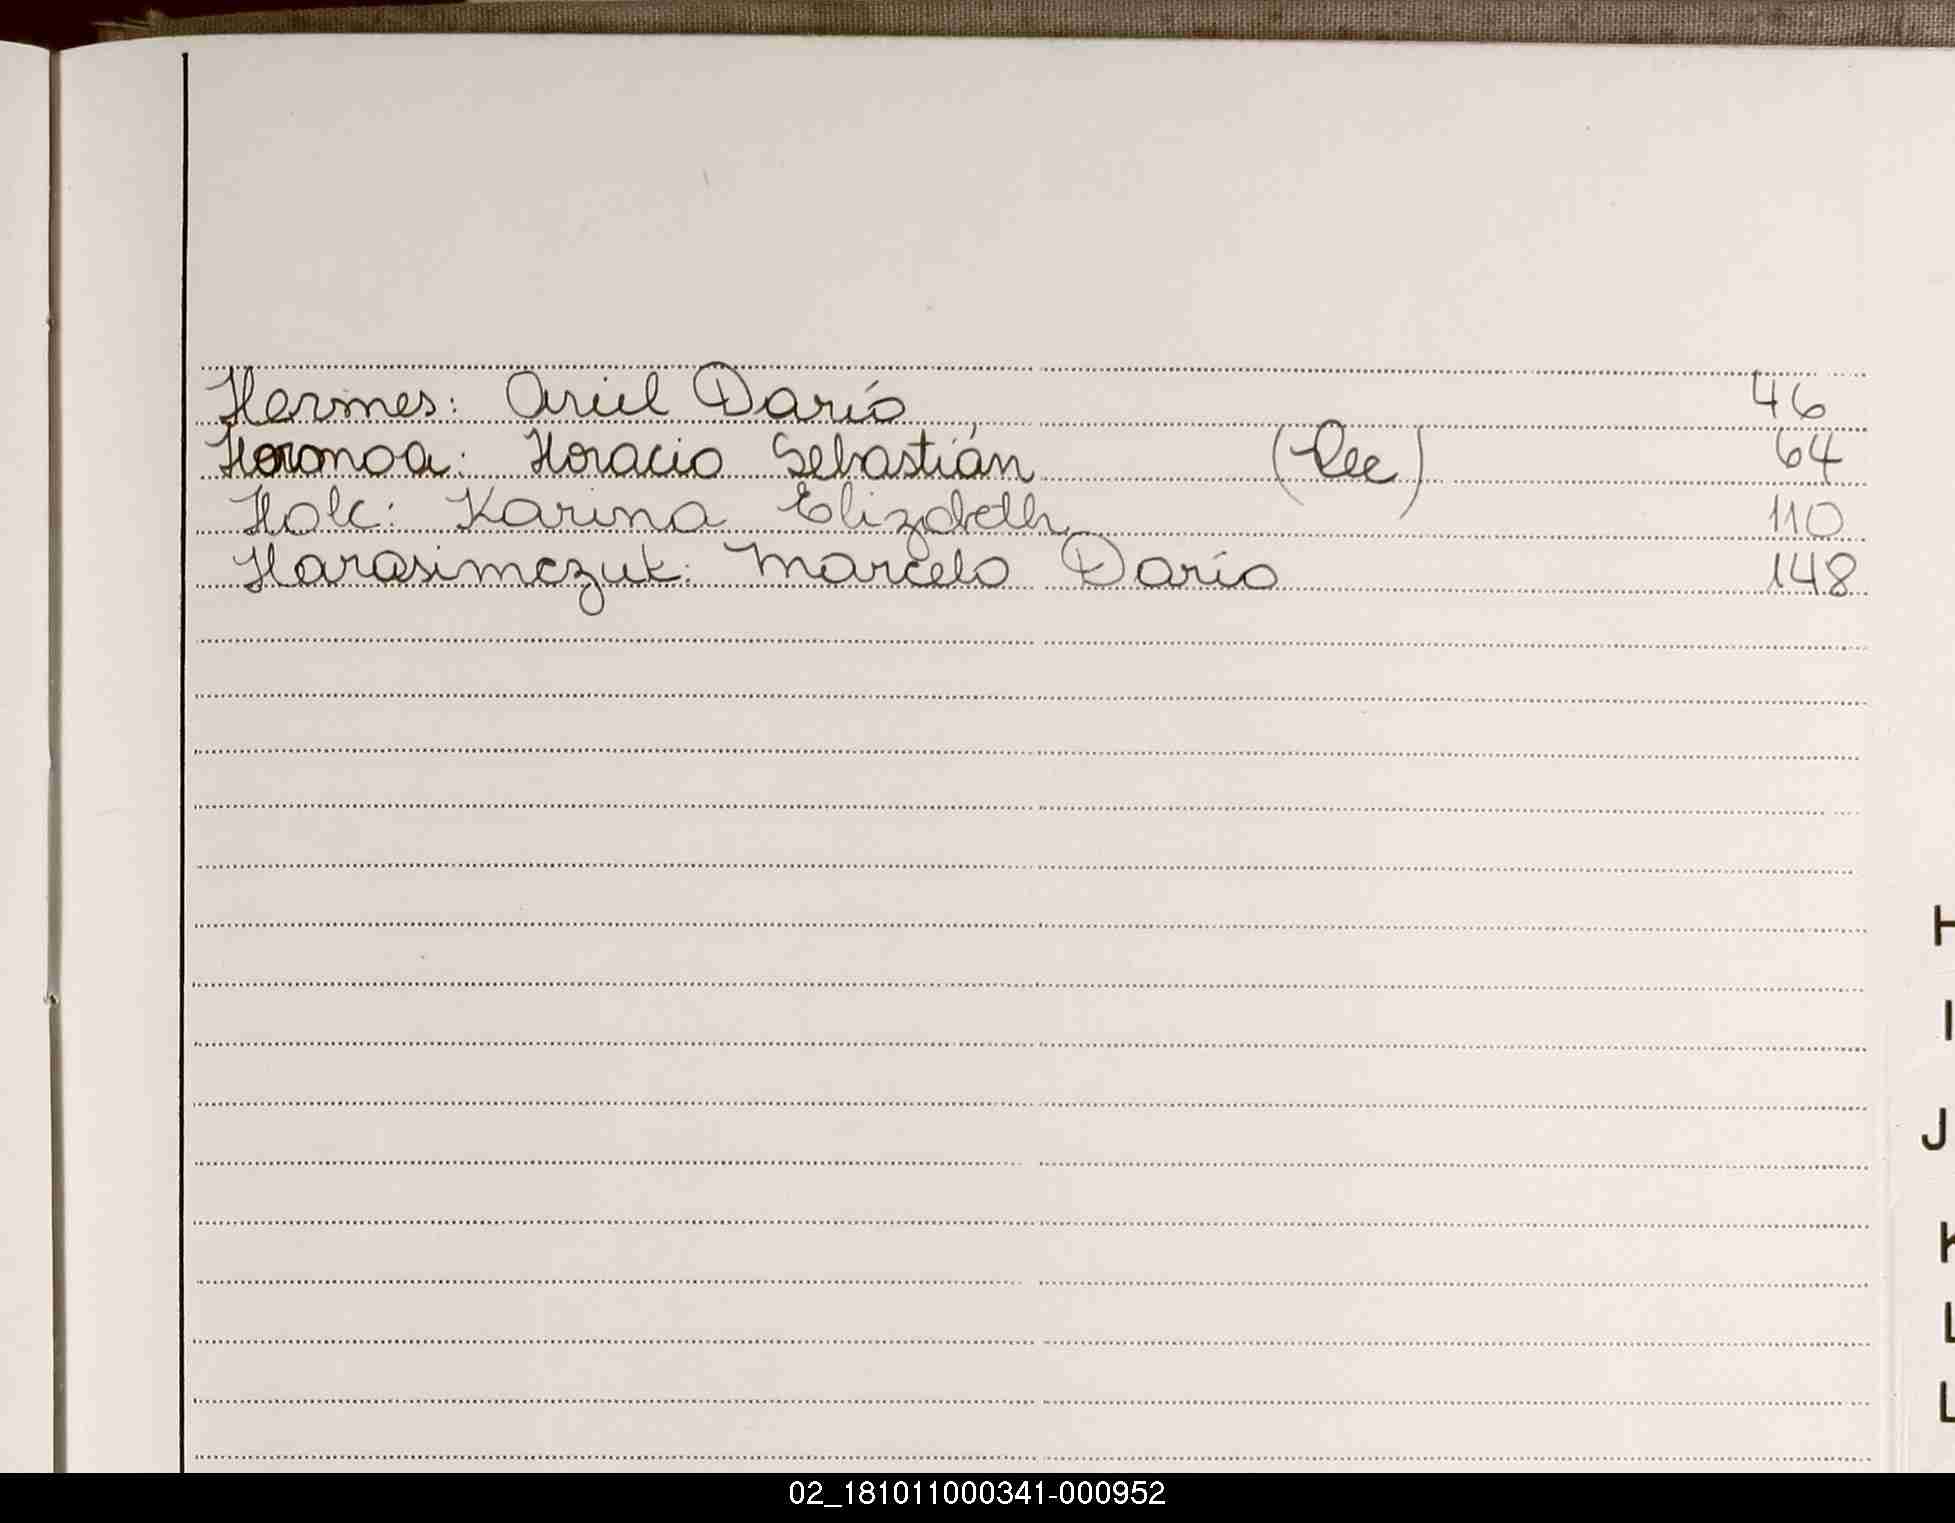 Hermes: Ariel Darío 46
Horacio Sebastián 64
Holc: Karina Elizabeth 110
Harasimczuk: Marcelo Darío 148
H
I
J
K
L
L
02_181011000341-000952